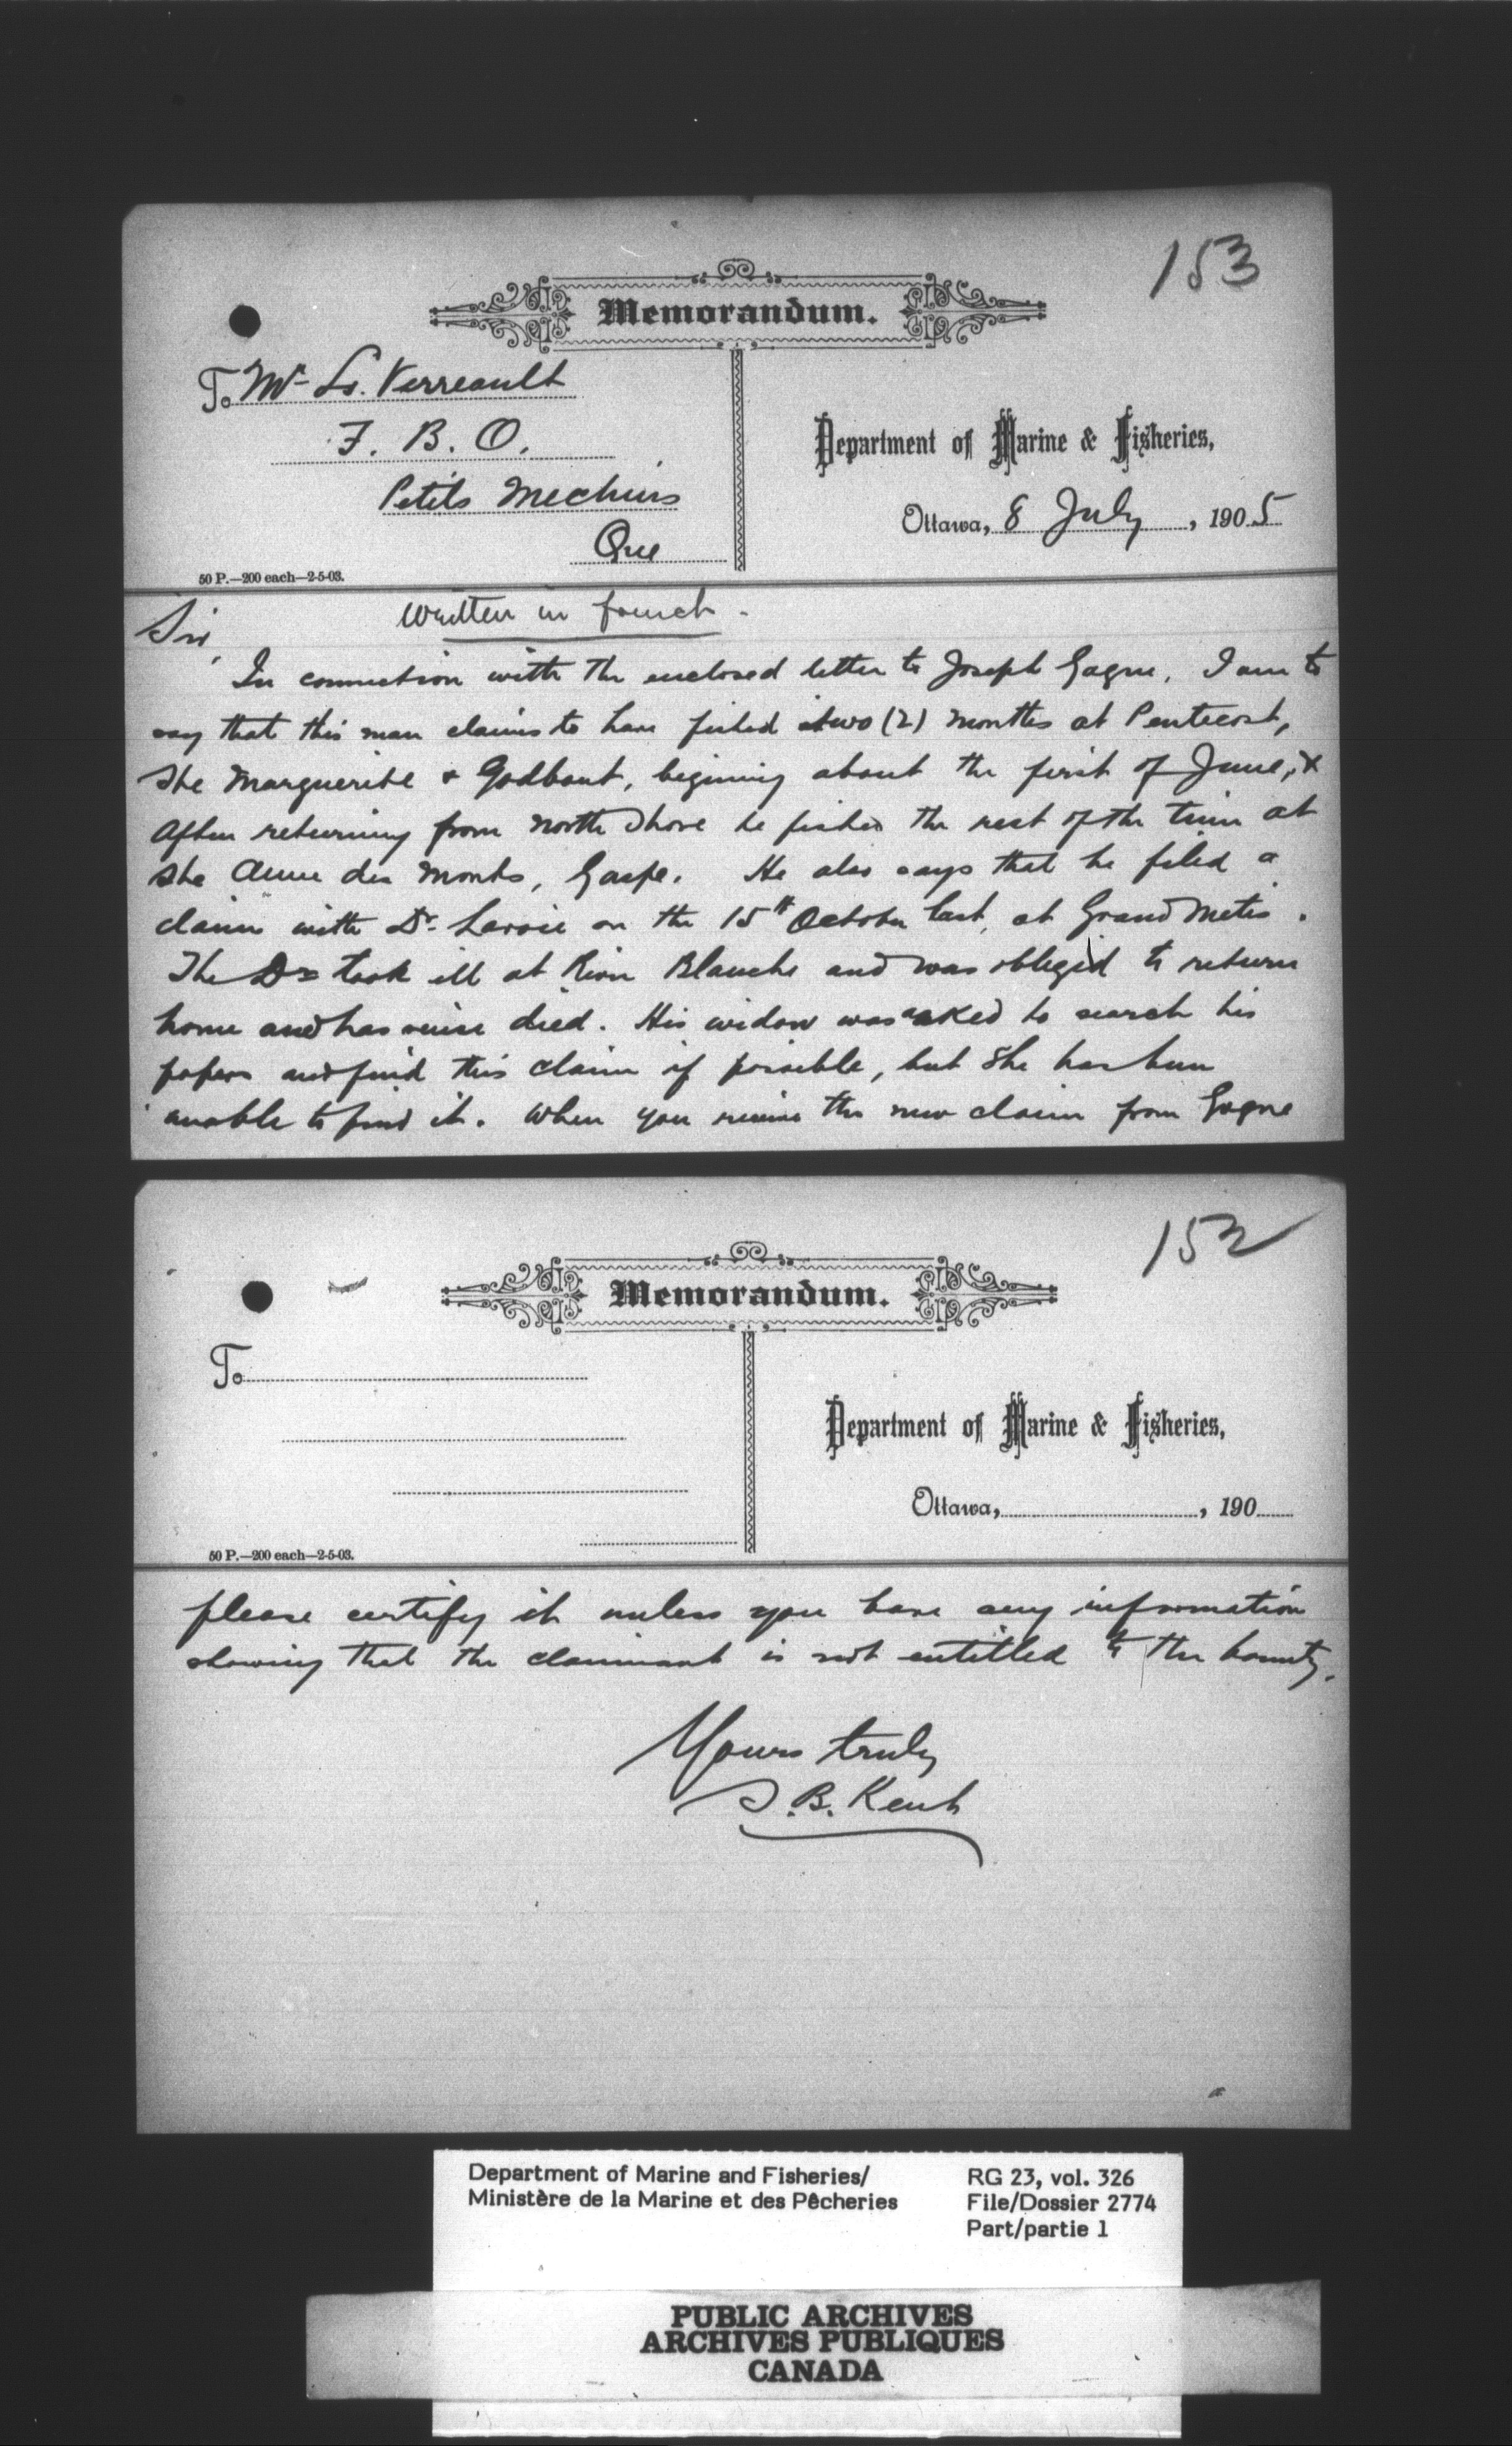 153
Memorandum.
To Mr Ls. Verreault
F. B. O.
Petits Mechins
Que
Department of Marine & Fisheries,
Ottawa, 8 July, 1905
50 P.—200 each—2-5-03.
Written in french -
Sir,
In connection with the enclosed letter to Joseph Gagne, I am to
say that this man claims to have fished two (2) months at Pentecost,
Ste Marguerite & Godbout, begining about the first of June, &
After returning from north shore he fished the rest of the time at
Ste Anne des Monts, Gaspe. He also says that he filed a
claim with Dr. Lavoie on the 15th October last, at Grand Metis.
The Dr took ill at Rivr Blanche and was obliged to return
home and has since died. His widow was asked to search his
papers and find this claim if possible, but she has been
unable to find it. When you receive the new claim from Gagne
152
Memorandum.
To
Department of Marine & Fisheries,
Ottawa, , 190
50 P.—200 each—2-5-03.
please certify it unless you have any information
showing that the claimant is not entitled to the bounty.
Yours truly
B. Kent
Department of Marine and Fisheries/
Ministère de la Marine et des Pêcheries
RG 23, vol. 326
File/Dossier 2774
Part/partie 1
PUBLIC ARCHIVES
ARCHIVES PUBLIQUES
CANADA